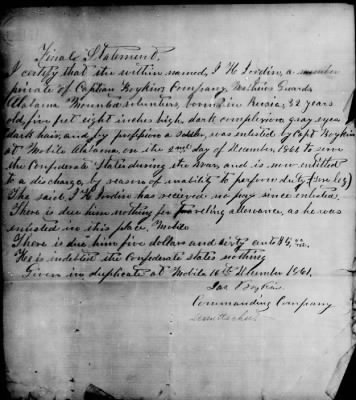 Final Statement.
I certify that the within named, J H Lordin, a member
private of Captain Boykins Company, Mathews Guards
Alabama Mounted volunteers, born in Russia, 32 years
old, five feet eight inches high, dark complexion, gray eyes
dark hair, and by profession a, was enlisted by Capt Boykin
at Mobile Alabama, on the 2nd day of December, 1861 to serve
the Confederate States during the War, and is now entitled
to a discharge, by reason of inability to perform duty (sore leg)
The said J H Lordin has recieved no pay since enlisted.
There is due him nothing for travelling allowance, as he was
enlisted in this place, Mobile
There is due him five dollars and sixty cents $5,
He is indebted the Confederate States nothing
Given in duplicate at Mobile 16th December 1861.
Boykin
Commanding Company